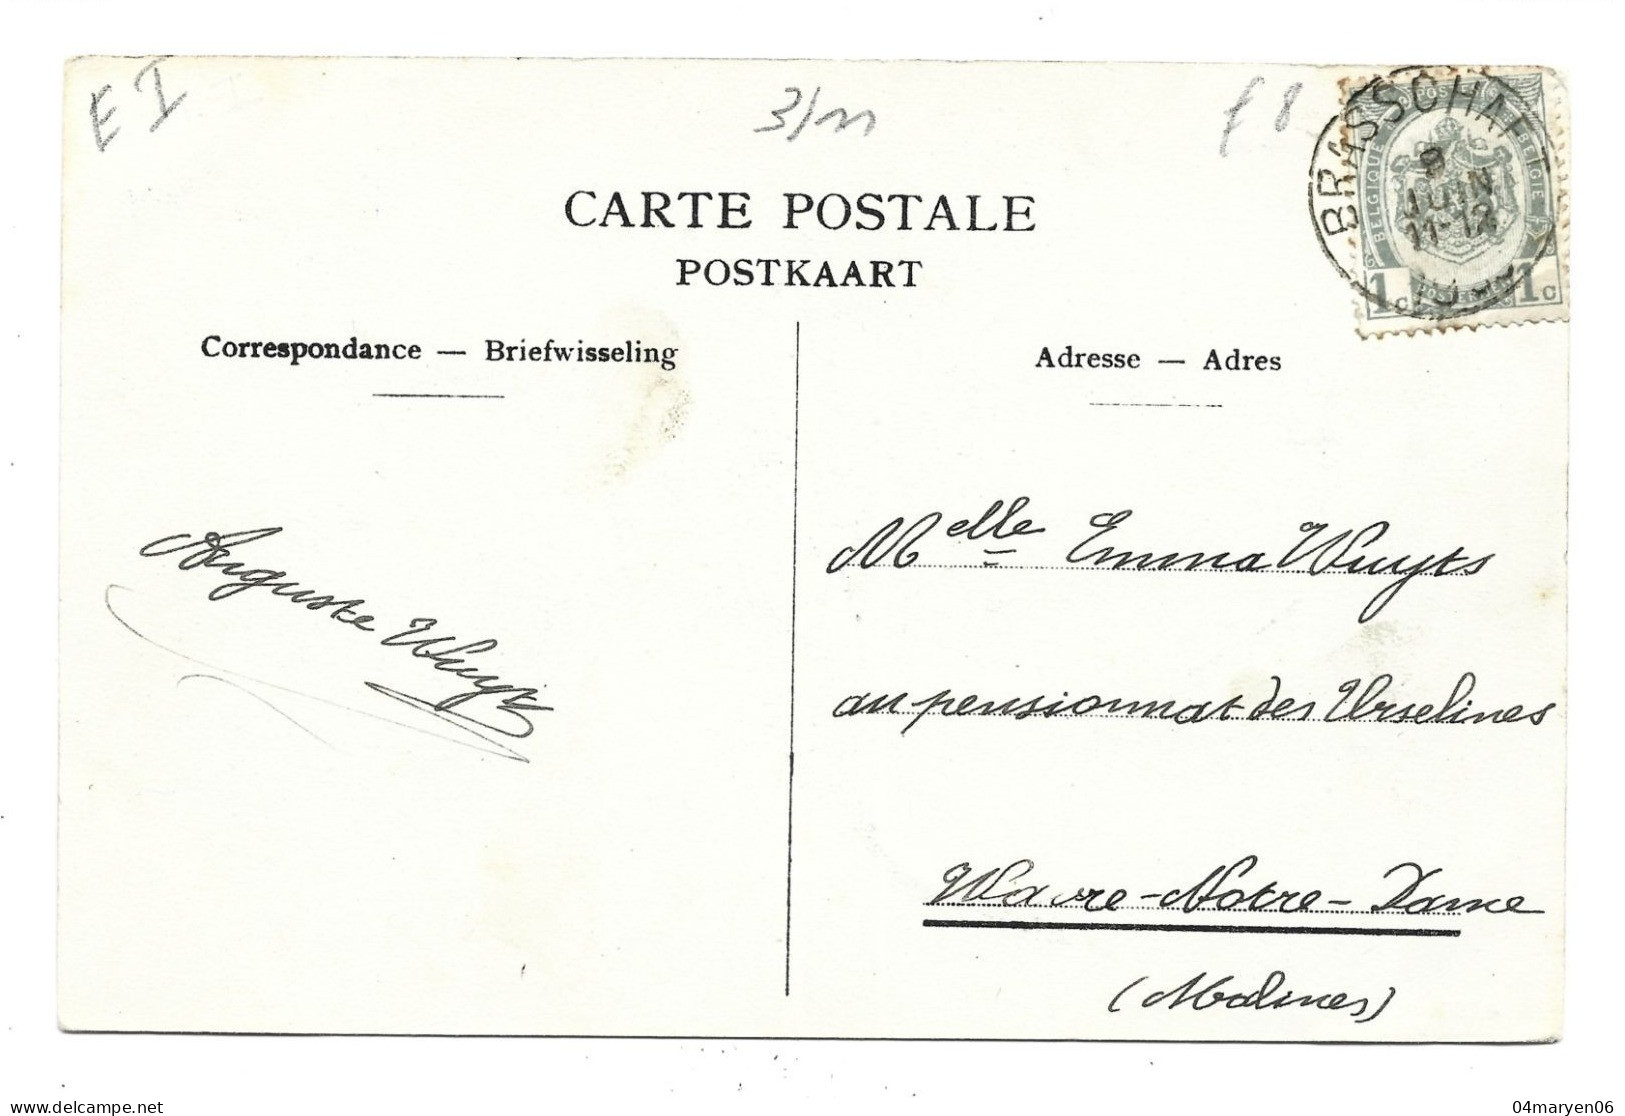 E I
3/11
f 8
CARTE POSTALE
POSTKAART
BRASSCHAET
8
JUIN
11-12
BELGIQUE POSTES BELGIE
1c 1c
Correspondance — Briefwisseling
Adresse — Adres
Auguste Wuyts
Melle Emma Wuyts
au pensionnat des Urselines
Wavre-Notre-Dame
(Malines)
delcampe.net
04maryen06